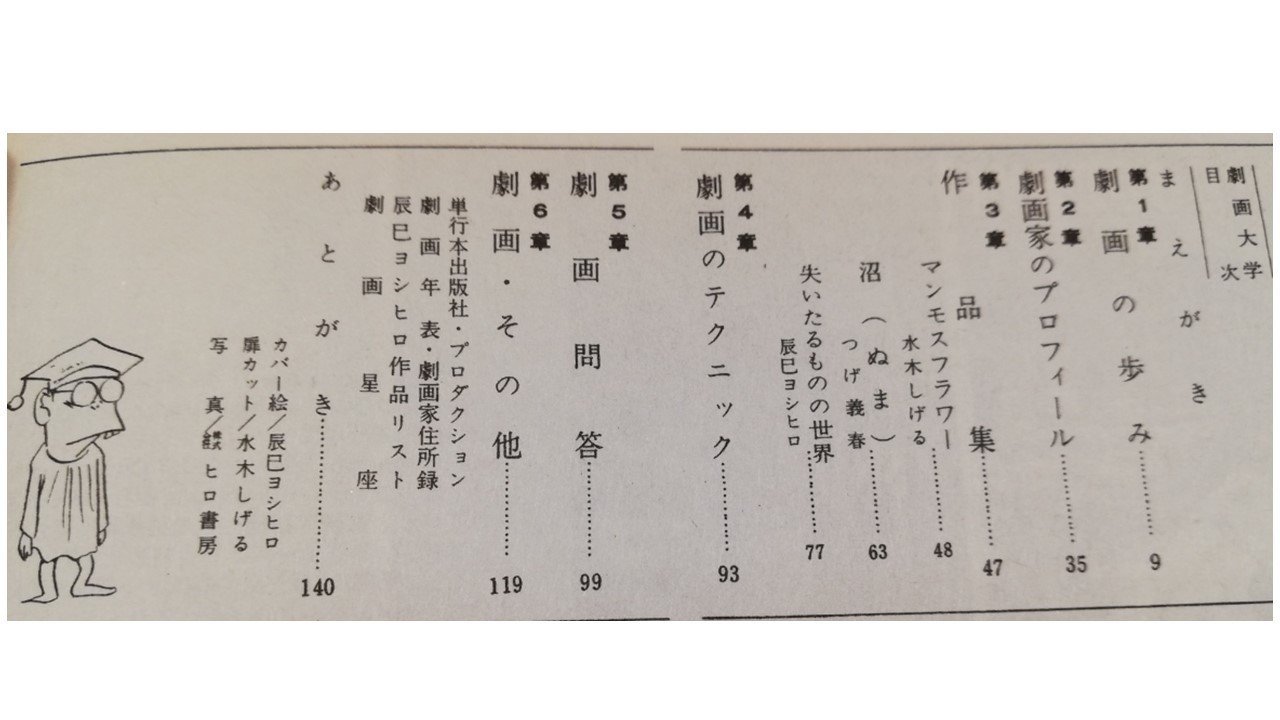 劇画大学
目次
まえがき
第1章
劇画の歩み……………9
第2章
劇画家のプロフィール……………35
第3章
作品集……………47
マンモスフラワー……………48
水木しげる
沼（ぬま）……………63
つげ義春
失いたるものの世界……………77
辰巳ヨシヒロ
第4章
劇画のテクニック……………93
第5章
劇画問答……………99
第6章
劇画・その他……………119
単行本出版社・プロダクション
劇画年表・劇画家住所録
辰巳ヨシヒロ作品リスト
劇画星座
あとがき……………140
カバー絵/辰巳ヨシヒロ
扉カット/水木しげる
写真/株式会社ヒロ書房